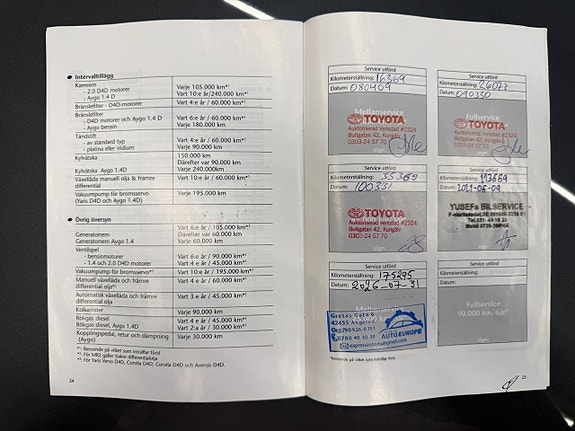 Intervalltillägg
Kamrem
- 2.0 D4D motorer Varje 105.000 km*¹
- Aygo 1.4 D Vart 10:e år/240.000 km*¹
Bränslefilter - D4D-motorer Vart 4:e år / 60.000 km*¹
Bränslefilter
- D4D motorer och Aygo 1.4 D Vart 6:e år / 60.000 km*¹
- Aygo bensin Varje 180.000 km
Tändstift
- av standard typ Vart 4:e år / 60.000 km*¹
- platina eller iridium Varje 90.000 km
Kylvätska 150.000 km
Därefter var 90.000 km
Kylvätska Aygo 1.4D Varje 240.000km
Växellåda manuell olja & främre Vart 4:e år / 60.000 km*¹
differential
Vakuumpump för bromsservo Varje 195.000 km
(Yaris D4D och Aygo 1.4D)
Övrig översyn
Vart 6:e år / 105.000 km*¹
Generatorrem Därefter var 60.000 km
Generatorrem Aygo 1.4 Varje 60.000 km
Ventilspel
- bensinmotorer Vart 6:e år / 90.000 km*¹
- 1.4 och 2.0 D4D motorer Vart 4:e år / 45.000 km*¹
Vakuumpump för bromsservo*³ Vart 10:e år / 195.000 km*¹
Manuell växellåda och främre Vart 4:e år / 45.000 km*¹
differential olja*²
Automatisk växellåda och främre Vart 3:e år / 45.000 km*¹
differential olja
Kolkanister Varje 90.000 km
Rökgas diesel Vart 4:e år / 45.000 km*¹
Rökgas diesel, Aygo 1.4D Vart 2:a år / 30.000 km*¹
Kopplingspedal, retur och dämpning Varje 30.000 km
(Aygo)
*¹: Beroende på vilket som inträffar först
*²: För MR2 gäller bakre differentialolja
*³: För Yaris Verso D4D, Corolla D4D, Corolla D4D och Avensis D4D.
24
Service utförd
Kilometerställning: 16369
Datum: 080409
Mellanservice
TOYOTA
Auktoriserad Verkstad #2324
Bultgatan 42, Kungälv
0303-24 57 70
Service utförd
Kilometerställning: 26077
Datum: 090330
Fullservice
TOYOTA
Auktoriserad Verkstad #2324
Bultgatan 42, Kungälv
0303-24 57 70
Service utförd
Kilometerställning: 35369
Datum: 100331
TOYOTA
Auktoriserad Verkstad #2324
Bultgatan 42, Kungälv
0303-24 57 70
Service utförd
Kilometerställning: 113669
Datum: 2021-06-09
YUSEFs BILSERVICE
Service utförd
Kilometerställning: 175275
Datum: 2026-07-31
42455 Angered
AUTOEUROPE
Service utförd
Kilometerställning:
Datum:
Fullservice
90.000 km/6år*
*Beroende på vilket som inträffar först
25